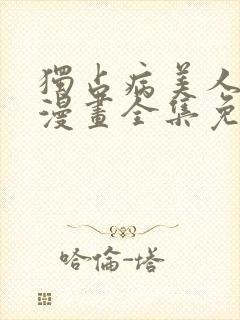 獨占病美人
漫畫全集免
哈倫-塔